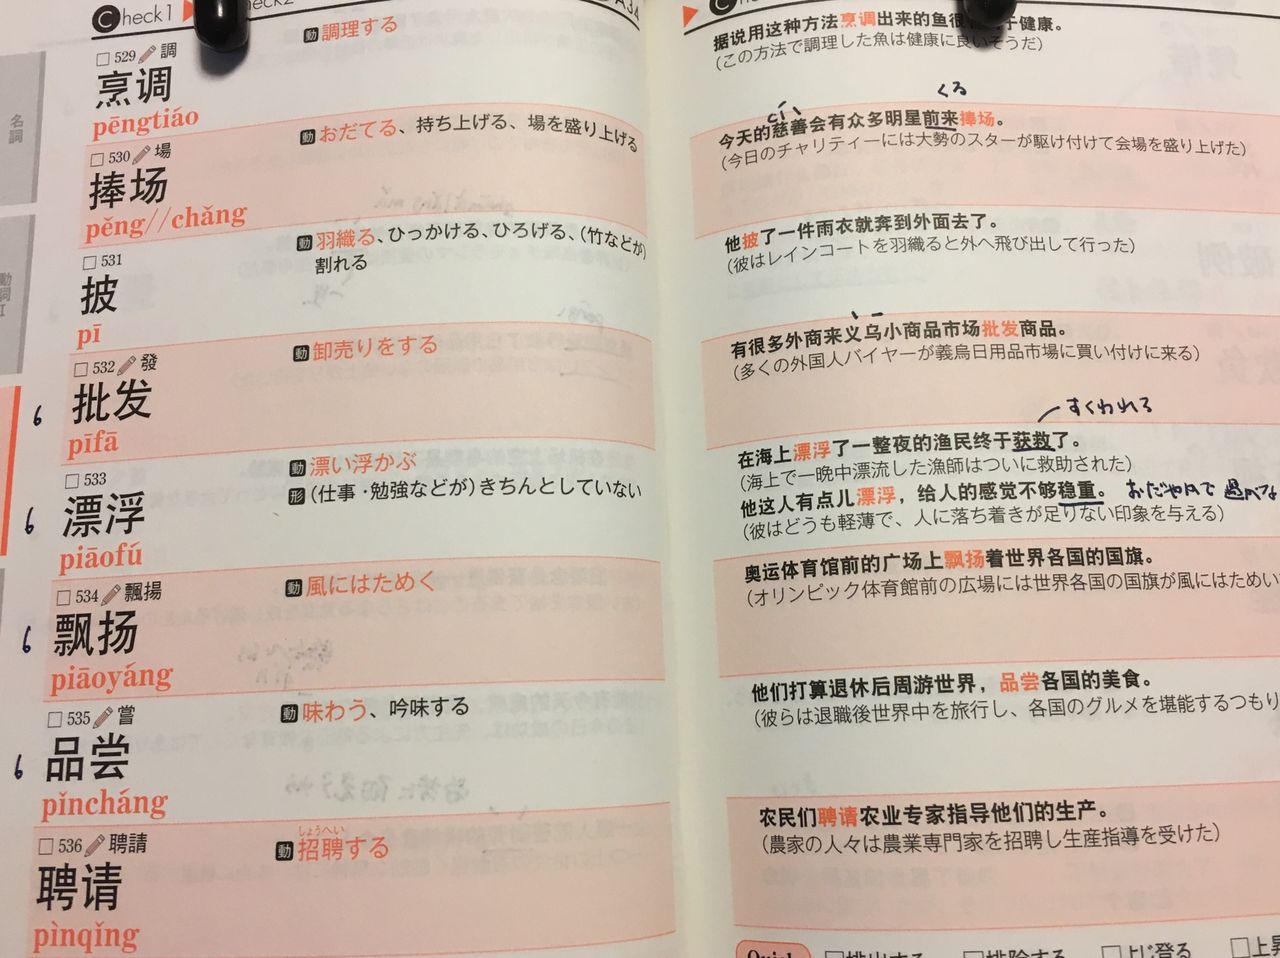 Check1
heck2
A34
名詞
動詞1
□ 529 調
烹调
pēngtiáo
動 調理する
□ 530 場
捧场
pěng//chǎng
動 おだてる、持ち上げる、場を盛り上げる
□ 531
披
pī
動 羽織る、ひっかける、ひろげる、（竹などが）
割れる
□ 532 發
批发
pīfā
動 卸売りをする
6
□ 533
漂浮
piāofú
動 漂い浮かぶ
形 （仕事・勉強などが）きちんとしていない
6
□ 534 飄揚
飘扬
piāoyáng
動 風にはためく
6
□ 535 嘗
品尝
pǐncháng
動 味わう、吟味する
6
□ 536 聘請
聘请
pìnqǐng
しょうへい
動 招聘する
据说用这种方法烹调出来的鱼很 于健康。
（この方法で調理した魚は健康に良いそうだ）
くる
cí
今天的慈善会有众多明星前来捧场。
（今日のチャリティーには大勢のスターが駆け付けて会場を盛り上げた）
他披了一件雨衣就奔到外面去了。
（彼はレインコートを羽織ると外へ飛び出して行った）
有很多外商来义乌小商品市场批发商品。
（多くの外国人バイヤーが義烏日用品市場に買い付けに来る）
すくわれる
在海上漂浮了一整夜的渔民终于获救了。
（海上で一晩中漂流した漁師はついに救助された）
他这人有点儿漂浮，给人的感觉不够稳重。 おだやかで
（彼はどうも軽薄で、人に落ち着きが足りない印象を与える）
奥运体育馆前的广场上飘扬着世界各国的国旗。
（オリンピック体育館前の広場には世界各国の国旗が風にはためい
他们打算退休后周游世界，品尝各国的美食。
（彼らは退職後世界中を旅行し、各国のグルメを堪能するつもり
农民们聘请农业专家指导他们的生产。
（農家の人々は農業専門家を招聘し生産指導を受けた）
Quick
□排出する □排除する □よじ登る □上昇